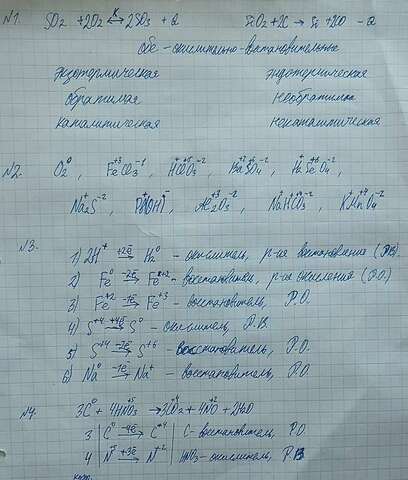 N1. SO2 + 2O2 ⇄ 2SO3 + Q SiO2 + 2C → Si + 2CO - Q
обе - окислительно-востановительные
экзотермическая эндотермическая
обратимая необратимая
каталитическая некаталитическая
N2. O2⁰, Fe⁺³Cl3⁻¹, Ba⁺²S⁺⁶O4⁻², H2⁺Se⁺⁶O4⁻²
Na2⁺S⁻², Al2⁺³O3⁻², Na⁺H⁺C⁺⁴O3⁻²
N3. 1) 2H⁺ +2ē→ H2⁰ - окислитель, р-ия востановления (Р.В.)
2) Fe⁰ -2ē→ Fe⁺² - восстановитель, р-ия окисления (Р.О.)
3) Fe⁺² -1ē→ Fe⁺³ - восстановитель, Р.О.
4) S⁺⁴ +4ē→ S⁰ - окислитель, Р.В.
5) S⁺⁴ -2ē→ S⁺⁶ - восстановитель, Р.О.
6) Na⁰ -1ē→ Na⁺ - восстановитель, Р.О
N4. 3C⁰ + 4HN⁺⁵O3 → 3C⁺⁴O2 + 4N⁺²O + 2H2O
3 | C⁰ -4ē→ C⁺⁴ | C - восстановитель, Р.О
4 | +3ē→ | HNO3 - окислитель, Р.В